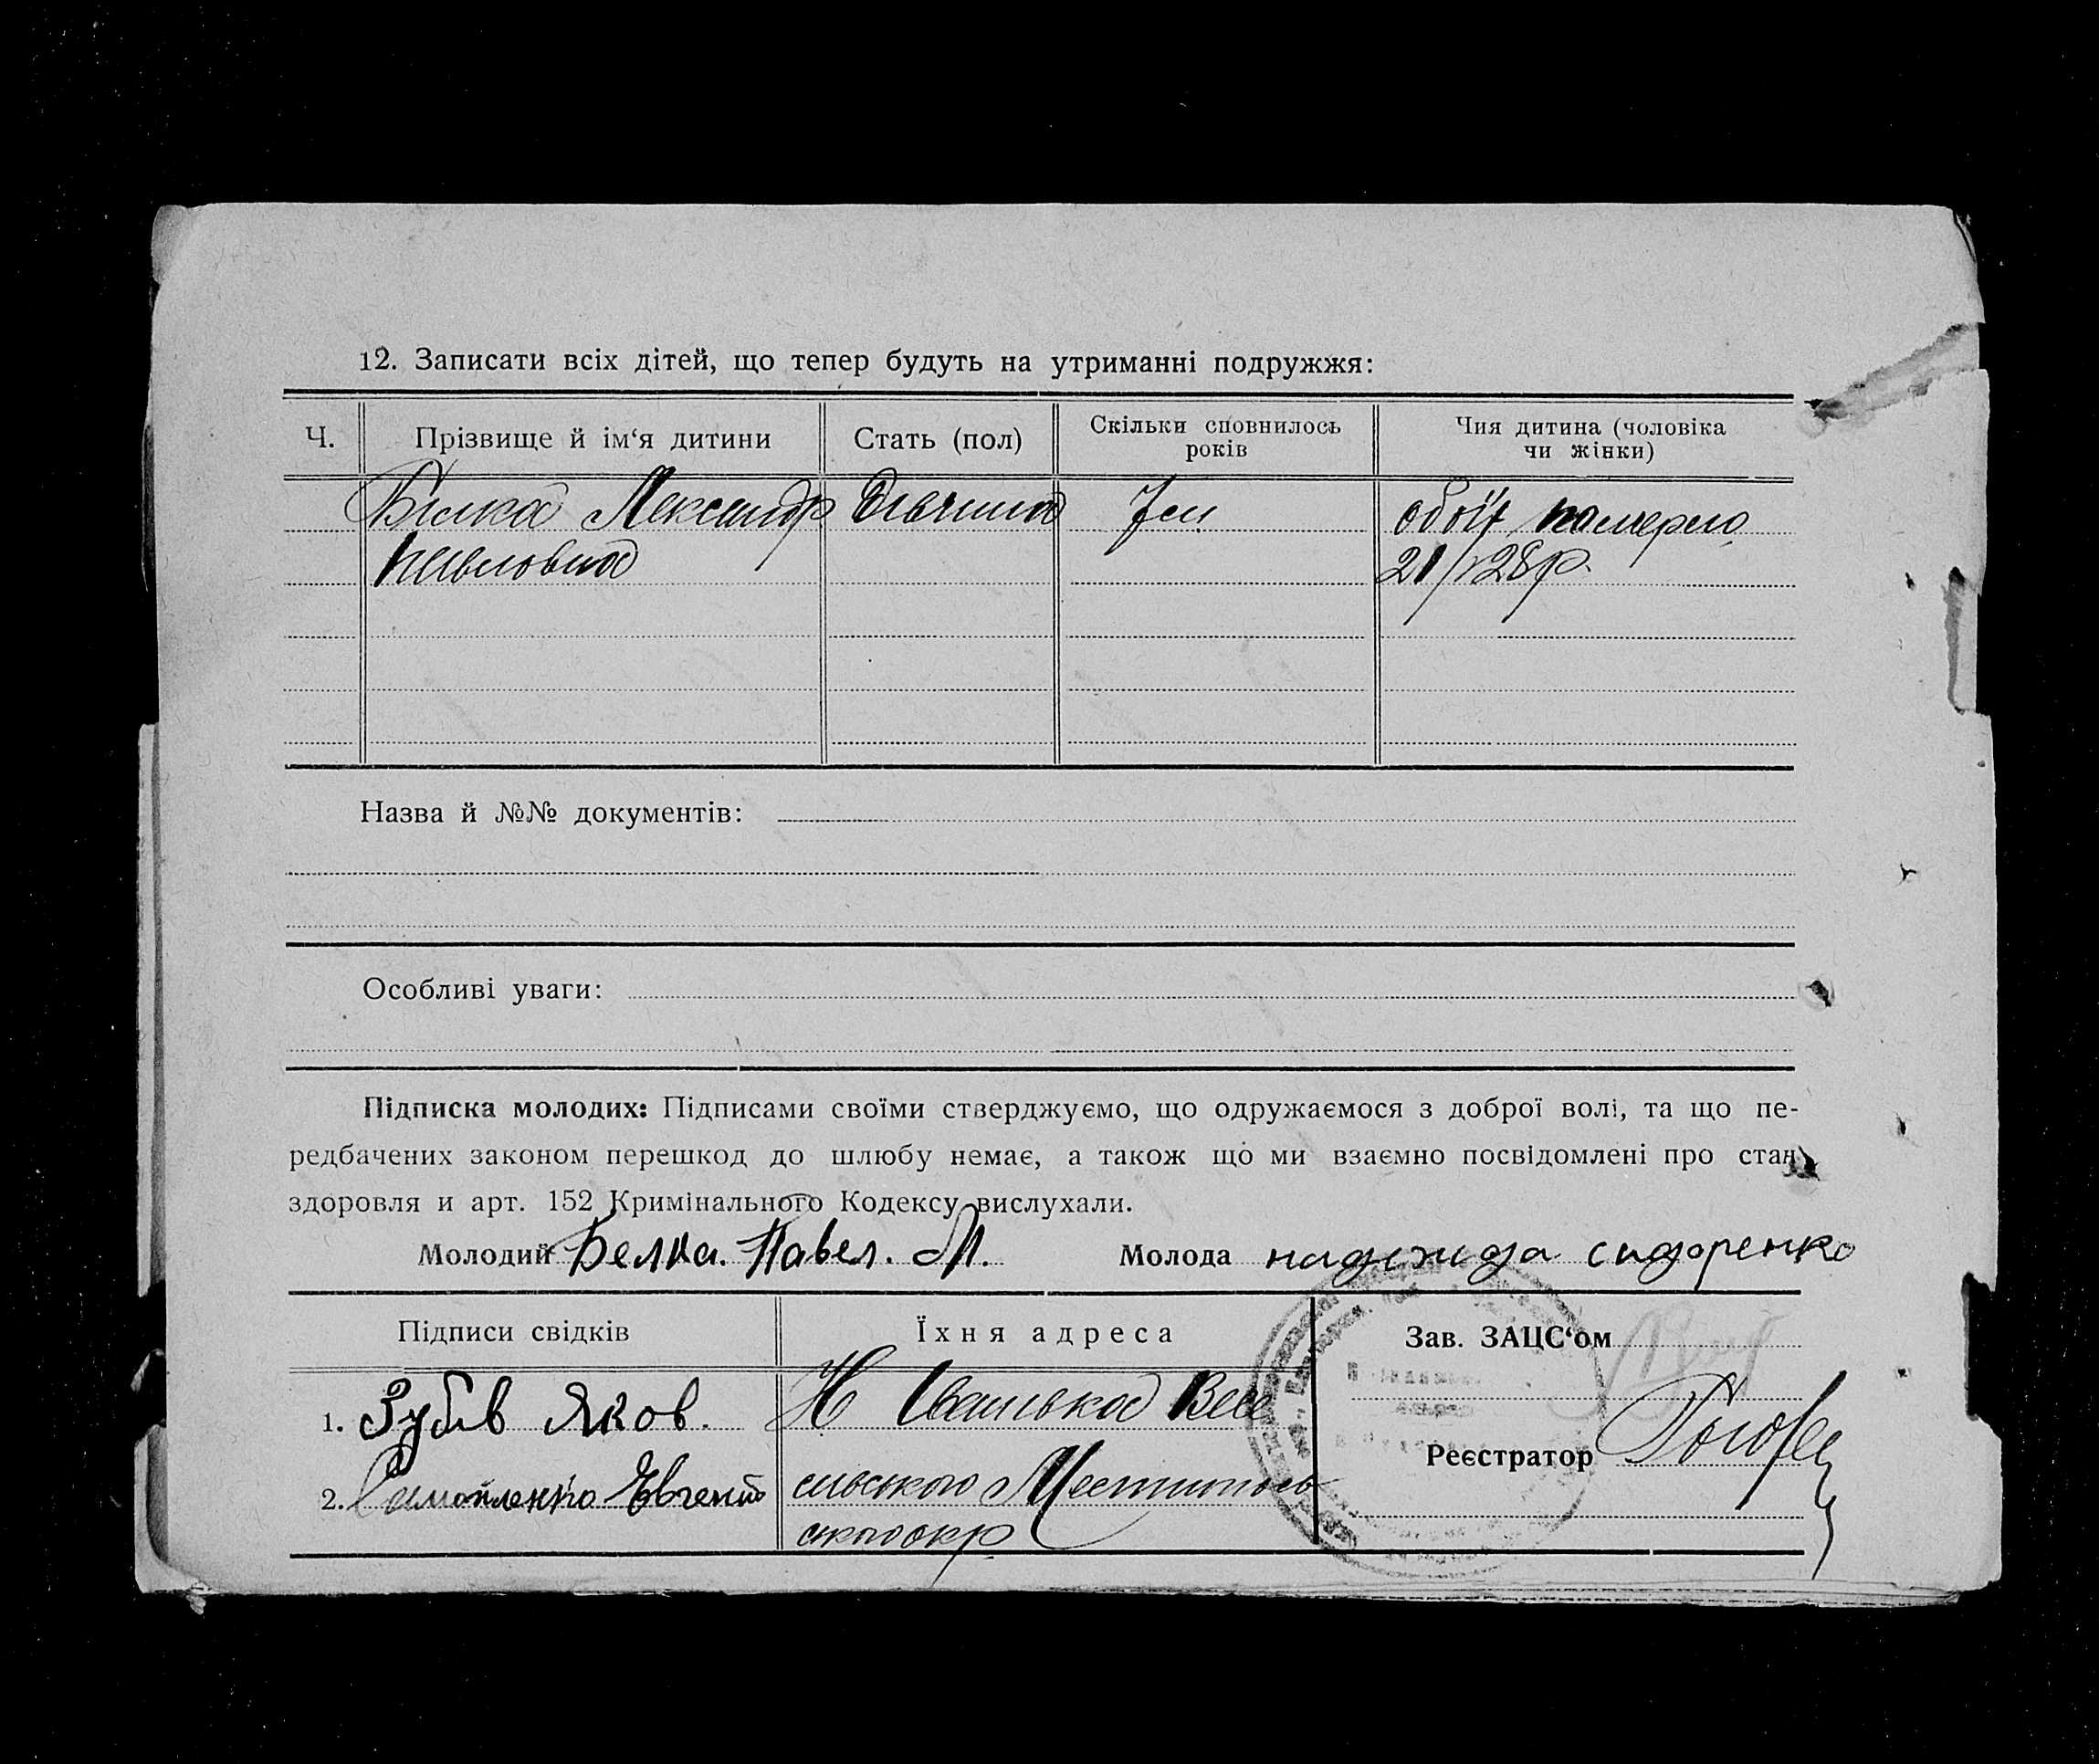 12. Записати всіх дітей, що тепер будуть на утриманні подружжя:
Ч. Прізвище й ім‘я дитини Стать (пол) Скільки сповнилось років Чия дитина (чоловіка чи жінки)
Білка Лександр Дівчина обоїх померла
Павловна 21/ 28р.
Назва й №№ документів:
Особливі уваги:
Підписка молодих: Підписами своїми стверджуємо, що одружаємося з доброї волі, та що пе-
редбачених законом перешкод до шлюбу немає, а також що ми взаємно посвідомлені про стан
здоровля и арт. 152 Кримінального Кодексу вислухали.
Молодий Белка. Павел. М. Молода надежида сидоренко
Підписи свідків Їхня адреса Зав. ЗАЦС‘ом
1. Зубів Яков. Н Іванівка Весе
Реєстратор
2. Самойленко Євгений
скго окр